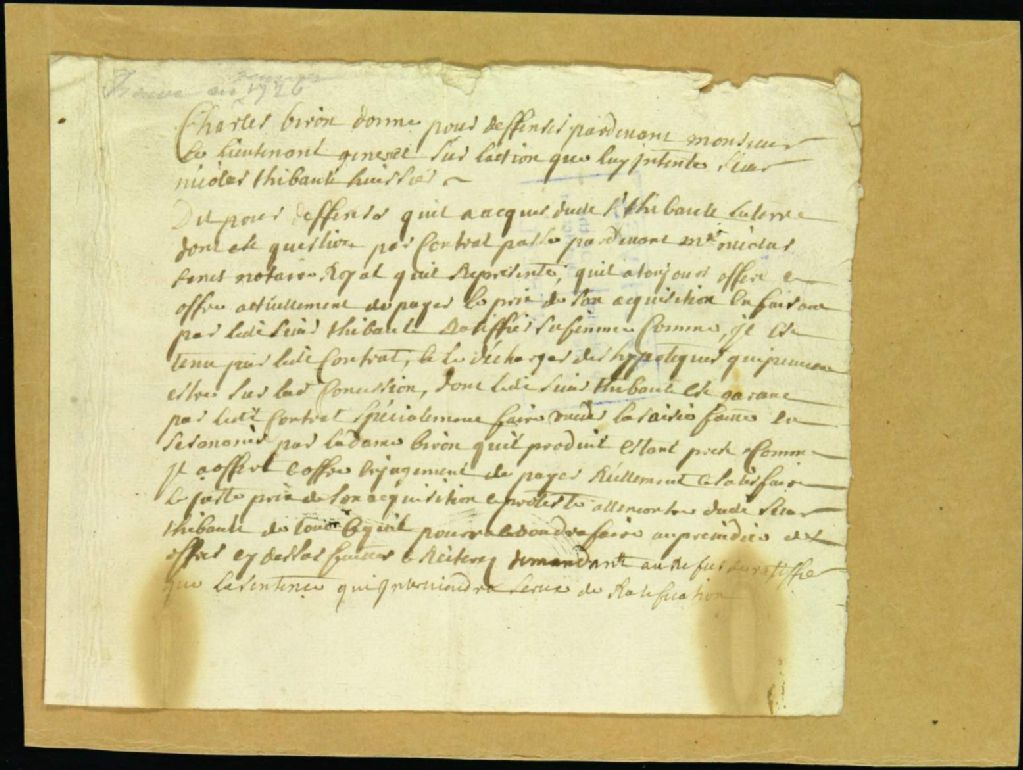 1726
Charles biron donne pour deffenses pardevant monsieur
le lieutenant general sur laction que luy intente sieur
nicolas thibault huissier
Dit pour deffenses quil a acquis dudt Sr thibault la terre
dont est question par Contrat passé pardevant me nicolas
notaire Royal quil Represente, quil a toujours offert et
offre actuellement de payer le prix de son acquisition En faisant
par ledt sieur thibault Ratiffier sa femme Comme jl est
tenu par ledt Contrat, et le décharger des hypoteques qui peuvent
estre sur la Concession, dont ledt sieur thibault est garant
par ledt Contrat spécialement faire la saisie faitte en
par la dame biron quil produit Estant prest Comme
jl a offert et offre de payer Réellement et satisfaire
le juste prix de son acquisition et proteste allencontre dudt sieur
thibault de tout ce quil pourra faire au prejudice des
offres cy dessus faittes et demandant au refus de ratiffier
que la sentence qui jnterviendra serve de Ratification